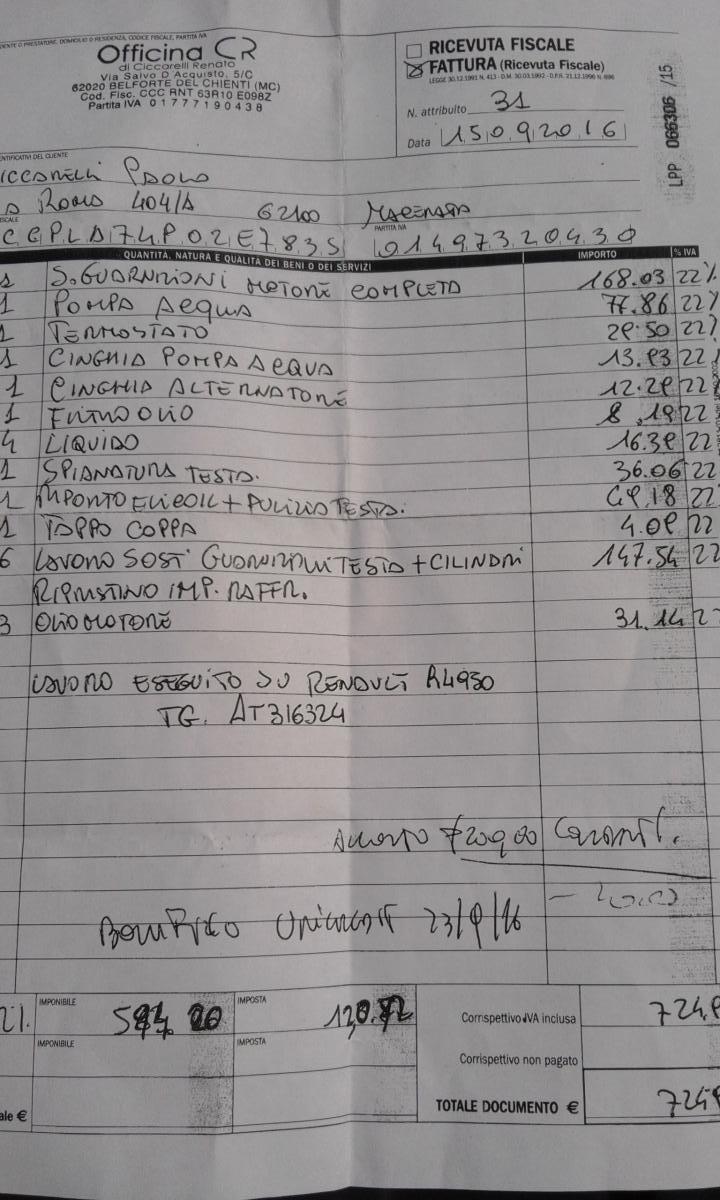 DENTE O PRESTATORE, DOMICILIO O RESIDENZA, CODICE FISCALE, PARTITA IVA
Officina CR
di Ciccarelli Renato
Via Salvo D'Acquisto, 5/C
62020 BELFORTE DEL CHIENTI (MC)
Cod. Fisc. CCC RNT 63R10 E098Z
Partita IVA 01777190438
RICEVUTA FISCALE
FATTURA (Ricevuta Fiscale)
LEGGE 30.12.1991 N. 413 - D.M. 30.03.1992 - D.P.R. 21.12.1996 N. 696
N. attribuito 31
Data 15092016
LPP 066306 /15
ENTIFICATIVI DEL CLIENTE
ICCARELLI PAOLO
A ROMA 404/A 62100 MACERATA
SCALE
PARTITA IVA
CCPLA74P02E783S 01497320430
QUANTITÀ, NATURA E QUALITÀ DEI BENI O DEI SERVIZI IMPORTO % IVA
1 S. GUARNIZIONI MOTORE COMPLETA 168.03 22%
1 POMPA ACQUA 77.86 22%
1 TERMOSTATO 50 22%
1 CINGHIA POMPA ACQUA 22
1 CINGHIA ALTERNATORE 22
1 FILTRO OLIO 8.19 22
4 LIQUIDO 22
1 SPIANATURA TESTA. 36.06 22
1 + PULIZIA TESTA. 22
1 TAPPO COPPA 22
6 LAVORO SOST. GUARNIZIONI TESTA + CILINDRI 147.54 22
RIPRISTINO IMP. RAFFR.
3 OLIO MOTORE 31.14 22
LAVORO ESEGUITO SU RENAULT R4950
TG. AT316324
ACCONTO €200,00 CONTANTI.
BONIFICO 23/9/16
IMPONIBILE
IMPOSTA
Corrispettivo IVA inclusa 724,
IMPONIBILE
IMPOSTA
Corrispettivo non pagato
ale €
TOTALE DOCUMENTO € 724